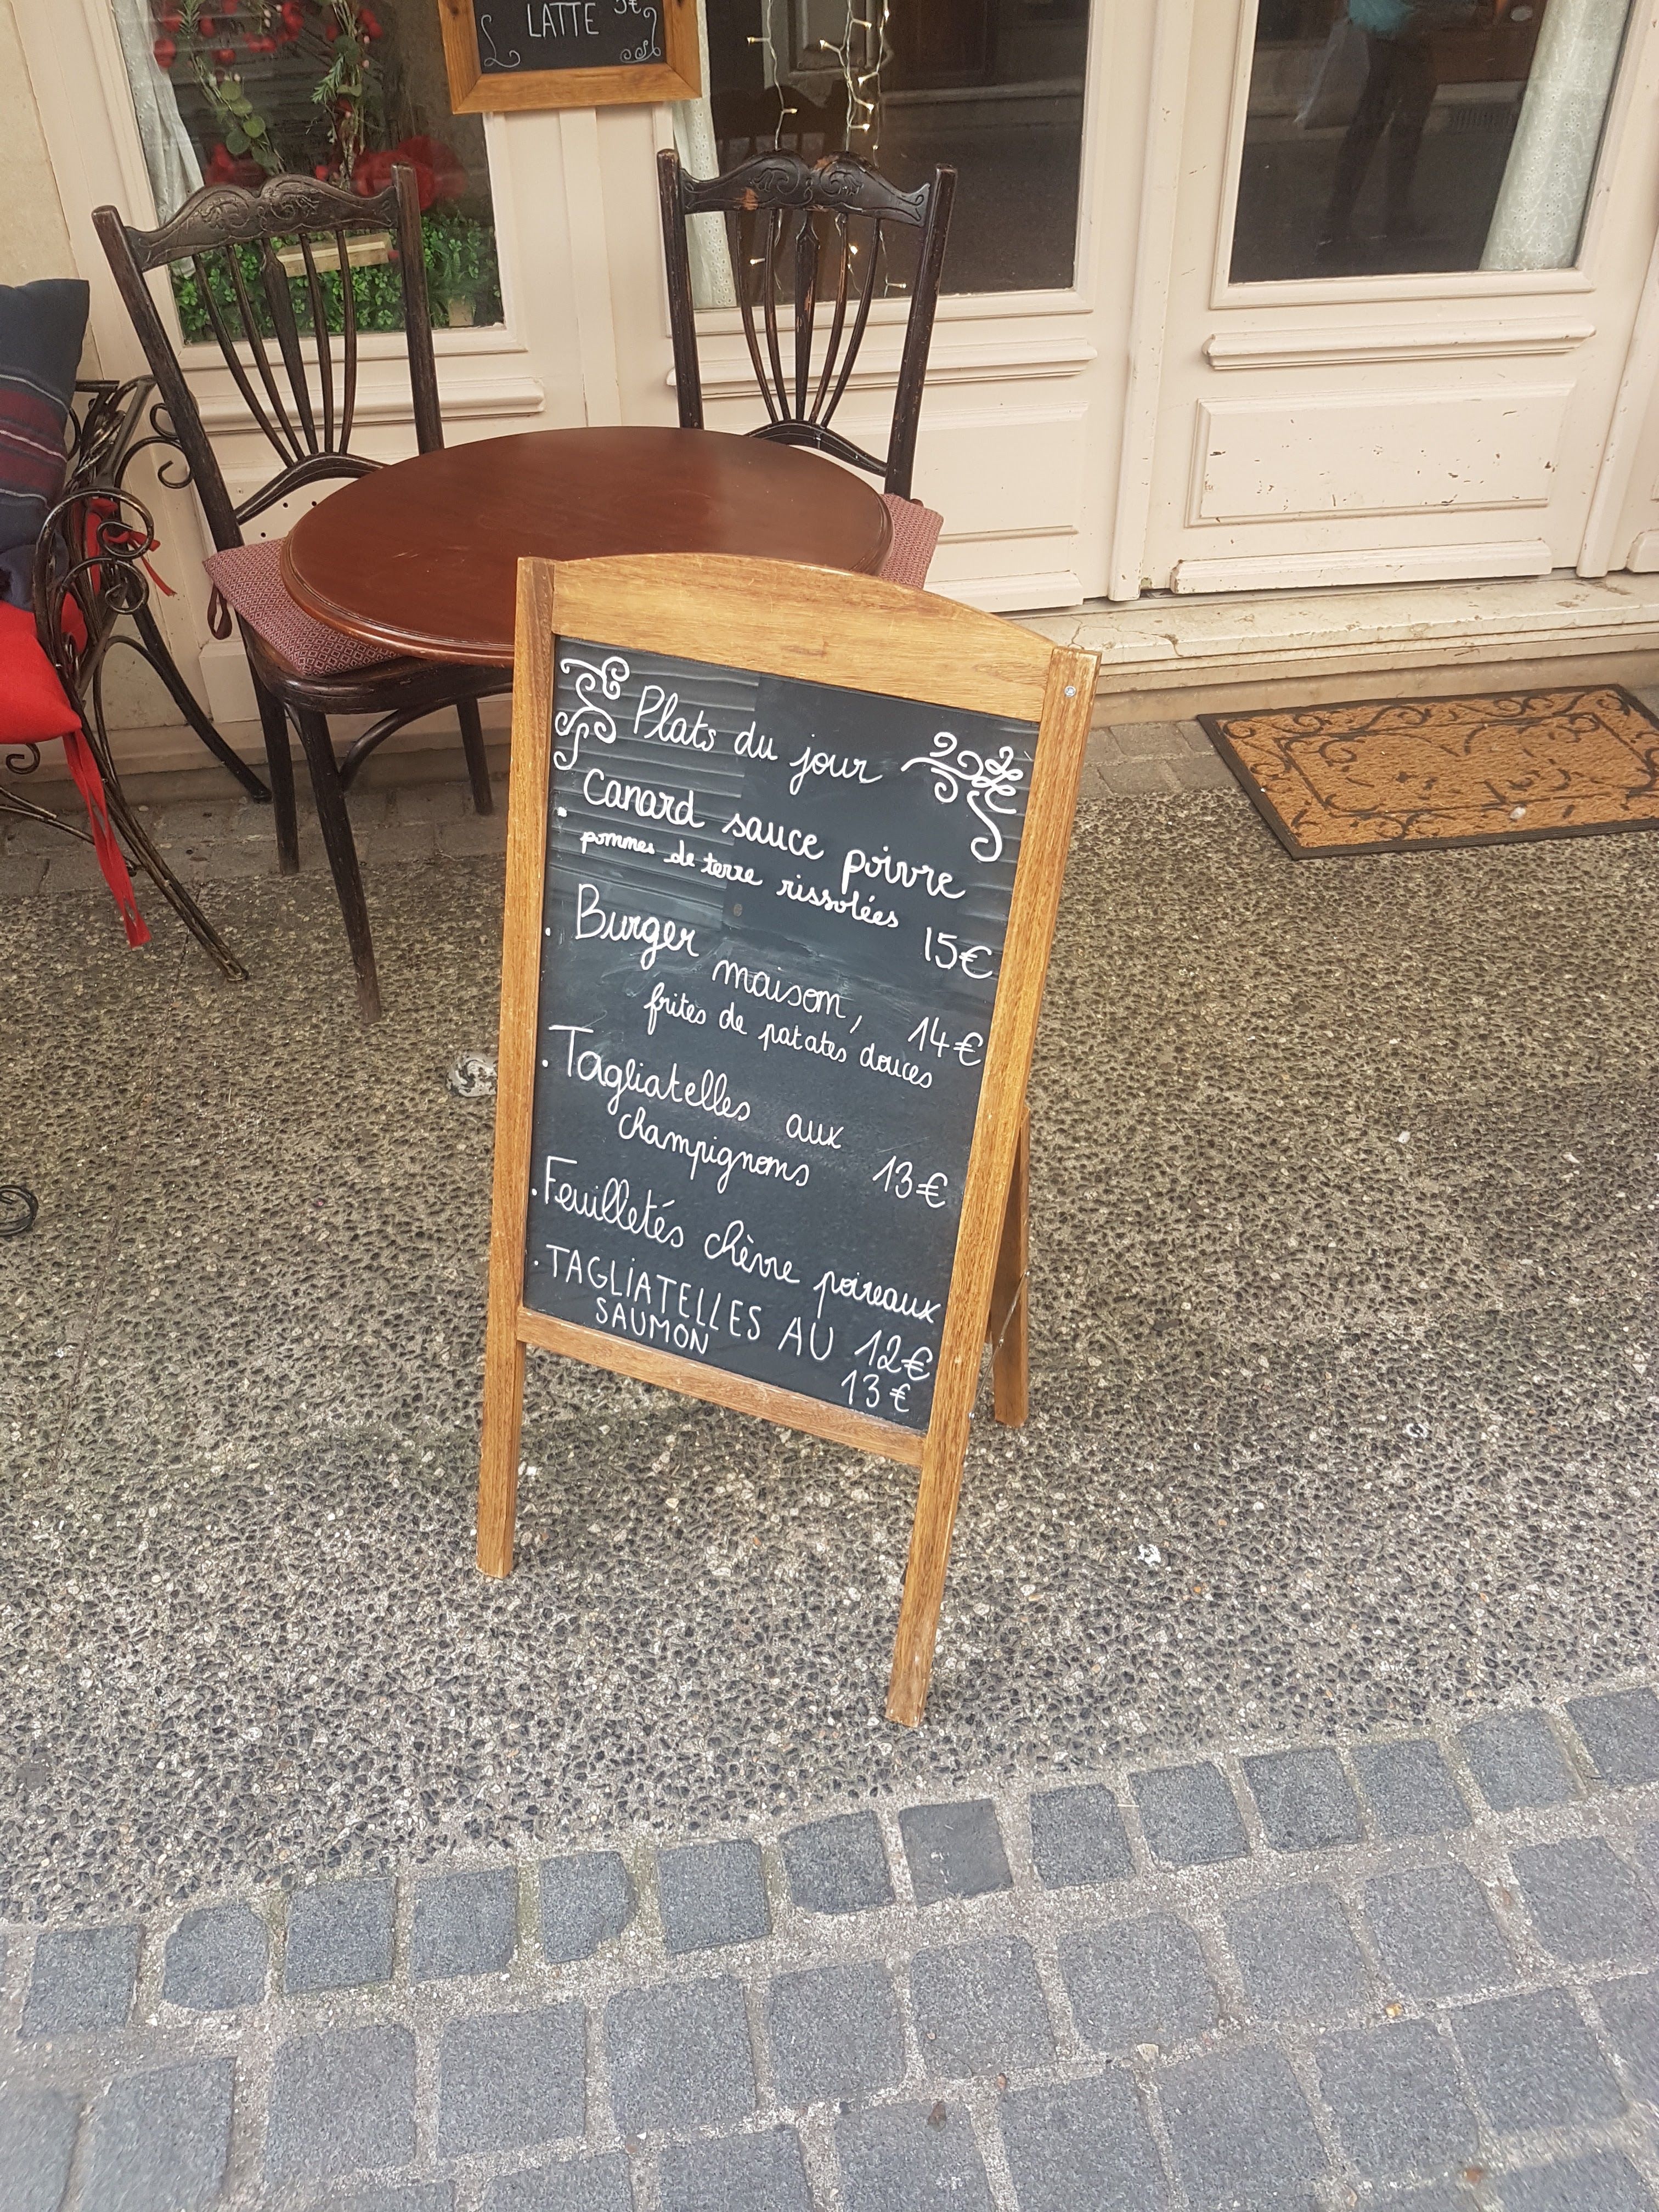 LATTE 5€
Plats du jour
. Canard sauce poivre
pommes de terre rissolées 15€
. Burger maison, 14€
frites de patates douces
. Tagliatelles aux
champignons 13€
. Feuilletés chèvre poireaux
12€
. TAGLIATELLES AU
SAUMON
13€